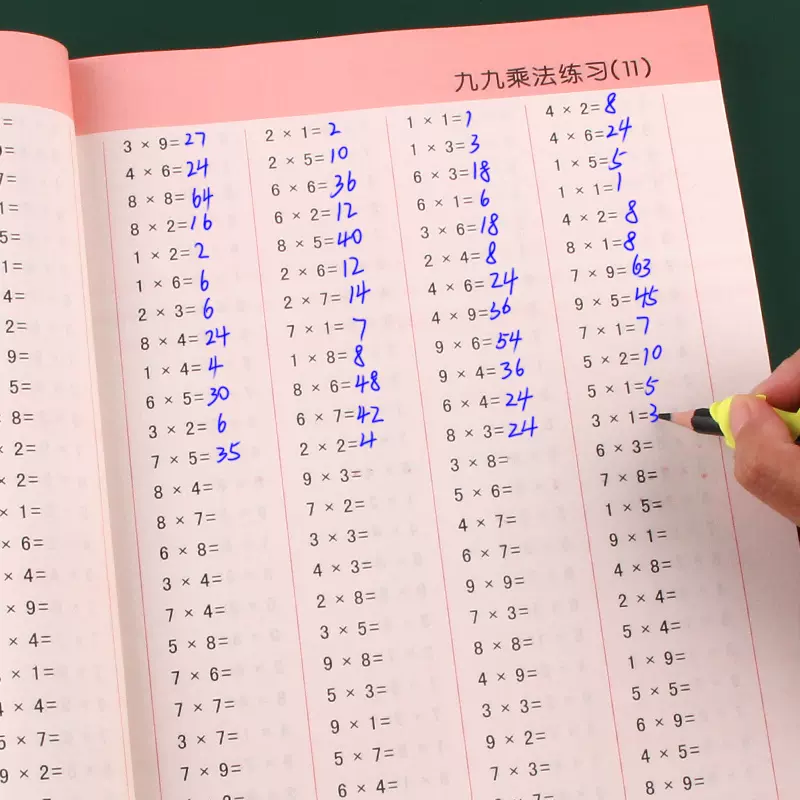 九九乘法练习(11)
=
9=
7=
1=
5=
1=
4=
2=
9=
5=
8=
× 2=
× 2=
× 1=
× 6=
× 4=
× 9=
× 4=
× 1=
× 4=
5 × 7=
9 × 2=
3 × 9=27
4 × 6=24
8 × 8=64
8 × 2=16
1 × 2=2
1 × 6=6
2 × 3=6
8 × 4=24
1 × 4=4
6 × 5=30
3 × 2=6
7 × 5=35
8 × 4=
8 × 7=
6 × 8=
3 × 4=
7 × 4=
5 × 8=
7 × 6=
7 × 7=
3 × 7=
7 × 9=
2 × 1=2
2 × 5=10
6 × 6=36
6 × 2=12
8 × 5=40
2 × 6=12
2 × 7=14
7 × 1=7
1 × 8=8
8 × 6=48
6 × 7=42
2 × 2=4
9 × 3=
7 × 2=
3 × 3=
4 × 3=
2 × 8=
3 × 5=
9 × 8=
5 × 3=
9 × 1=
5 × 7=
6 × 4=
1 × 1=1
1 × 3=3
6 × 3=18
6 × 1=6
3 × 6=18
2 × 4=8
4 × 6=24
4 × 9=36
9 × 6=54
9 × 4=36
6 × 4=24
8 × 3=24
3 × 8=
5 × 6=
4 × 7=
6 × 7=
9 × 9=
7 × 3=
8 × 8=
4 × 9=
3 × 3=
9 × 2=
7 × 9=
4 × 2=8
4 × 6=24
1 × 5=5
1 × 1=1
4 × 2=8
8 × 1=8
7 × 9=63
9 × 5=45
7 × 1=7
5 × 2=10
5 × 1=5
3 × 1=3
6 × 3=
7 × 8=
1 × 5=
9 × 1=
4 × 8=
2 × 4=
5 × 4=
1 × 9=
5 × 5=
6 × 9=
4 × 5=
8 × 9=